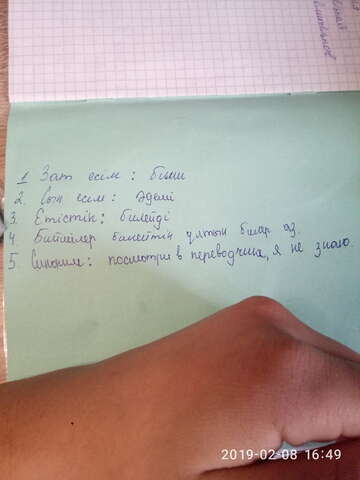 1 Зат есім : биші
2. Сын есім : Әдемі
3. Етістік : билейді
4. Бишілер билейтін ұлтын бишар әз.
5. Синоним : посмотри в переводчике, я не знаю.
2019-02-08 16:49